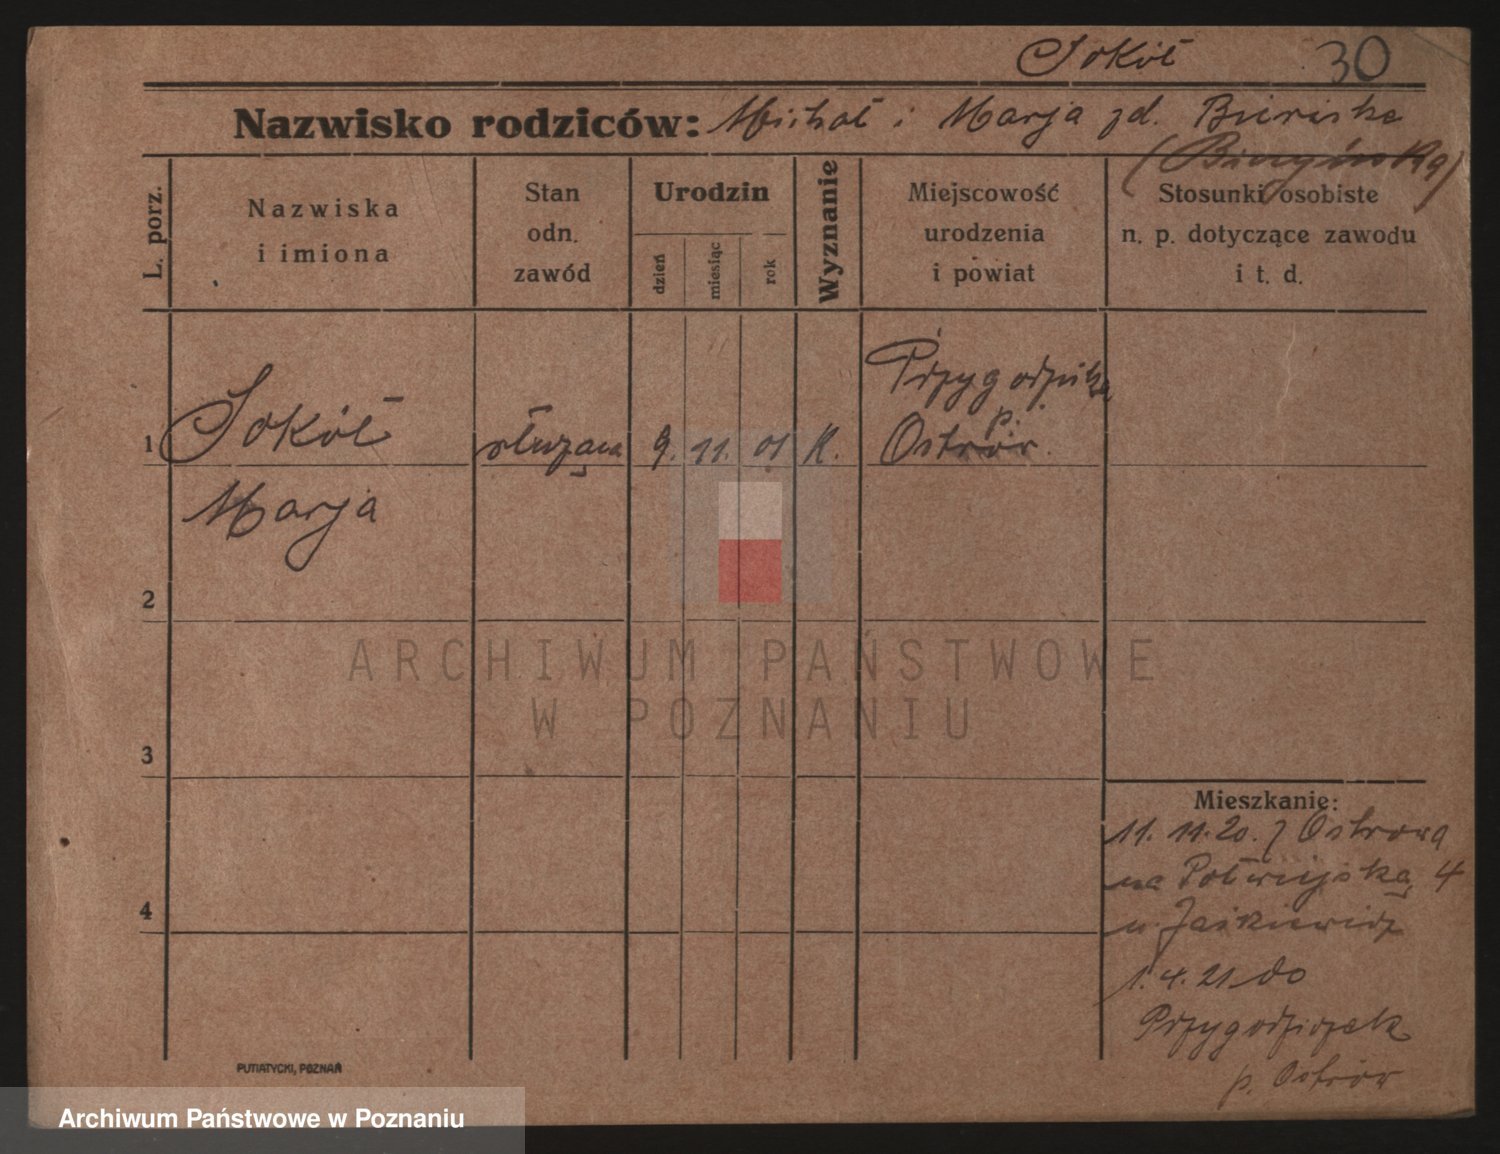 Sokół 30
Nazwisko rodziców: Michał i Marja zd.
L. porz.
Nazwiska
i imiona
Stan
odn.
zawód
Urodzin
dzień
miesiąc
rok
Wyznanie
Miejscowość
urodzenia
i powiat
Stosunki osobiste
n. p. dotyczące zawodu
i t. d.
1 Sokół służąca 9. 11. 01 K.
Marja
p.
Ostrów.
2
3
4
Mieszkanie:
11. 11. 20. z Ostrowa
na 4
u Jaśkiewicz
1. 4. 21 do
p. Ostrów
PUTIATYCKI, POZNAŃ
ARCHIWUM PAŃSTWOWE
W POZNANIU
Archiwum Państwowe w Poznaniu